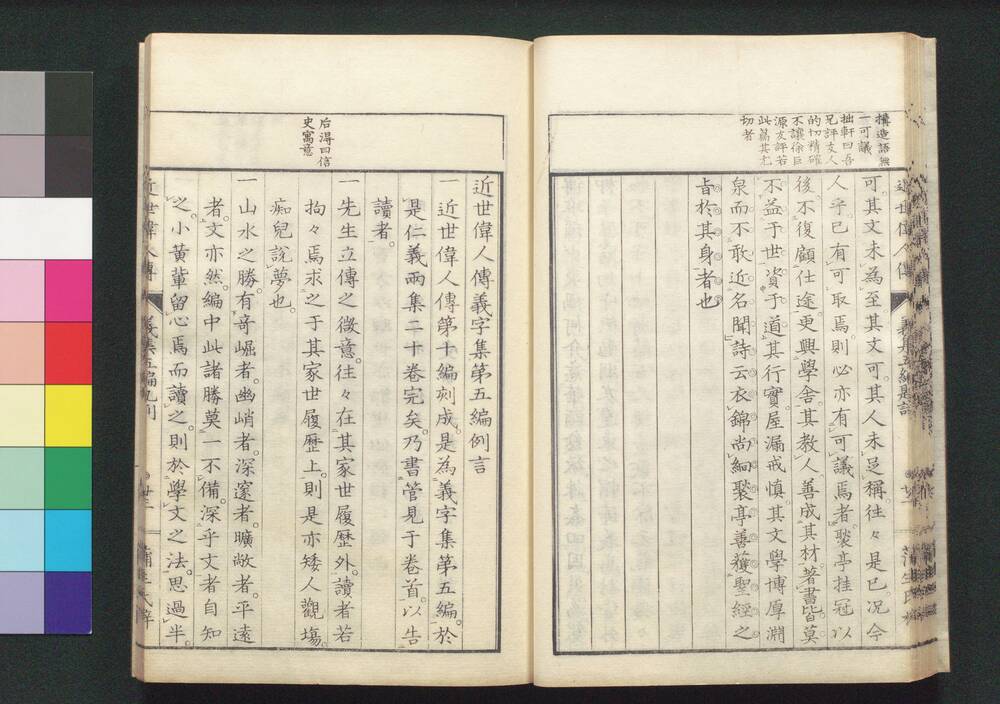 構造語無
一可議
拙軒曰吾
兄評友人
的切精確
不讓徐巨
源友評若
此篇其尤
切者
可其文未為至其文可其人未足稱往々是已况今
人乎已有可取焉則必亦有可議焉者聚亭挂冠以
後不復顧仕途更興學舍其教人善成其材著書皆莫
不益于世資于道其行實屋漏戒慎其文學博厚淵
泉而不敢近名聞詩云衣錦尚絅聚亭善獲聖經之
旨於其身者也
后淂四信
史寓意
近世偉人傳義字集第五編例言
一近世偉人傳第十編刻成是為義字集第五編於
是仁義兩集二十卷完矣乃書管見于卷首以告
讀者
一先生立傳之微意往々在其家世履歷外讀者若
拘々焉求之于其家世履歷上則是亦矮人觀場
痴兒說夢也
一山水之勝有竒崛者幽峭者深邃者曠敞者平遠
者文亦然編中此諸勝莫一不備深乎文者自知
之小黄輩留心焉而讀之則於學文之法思過半